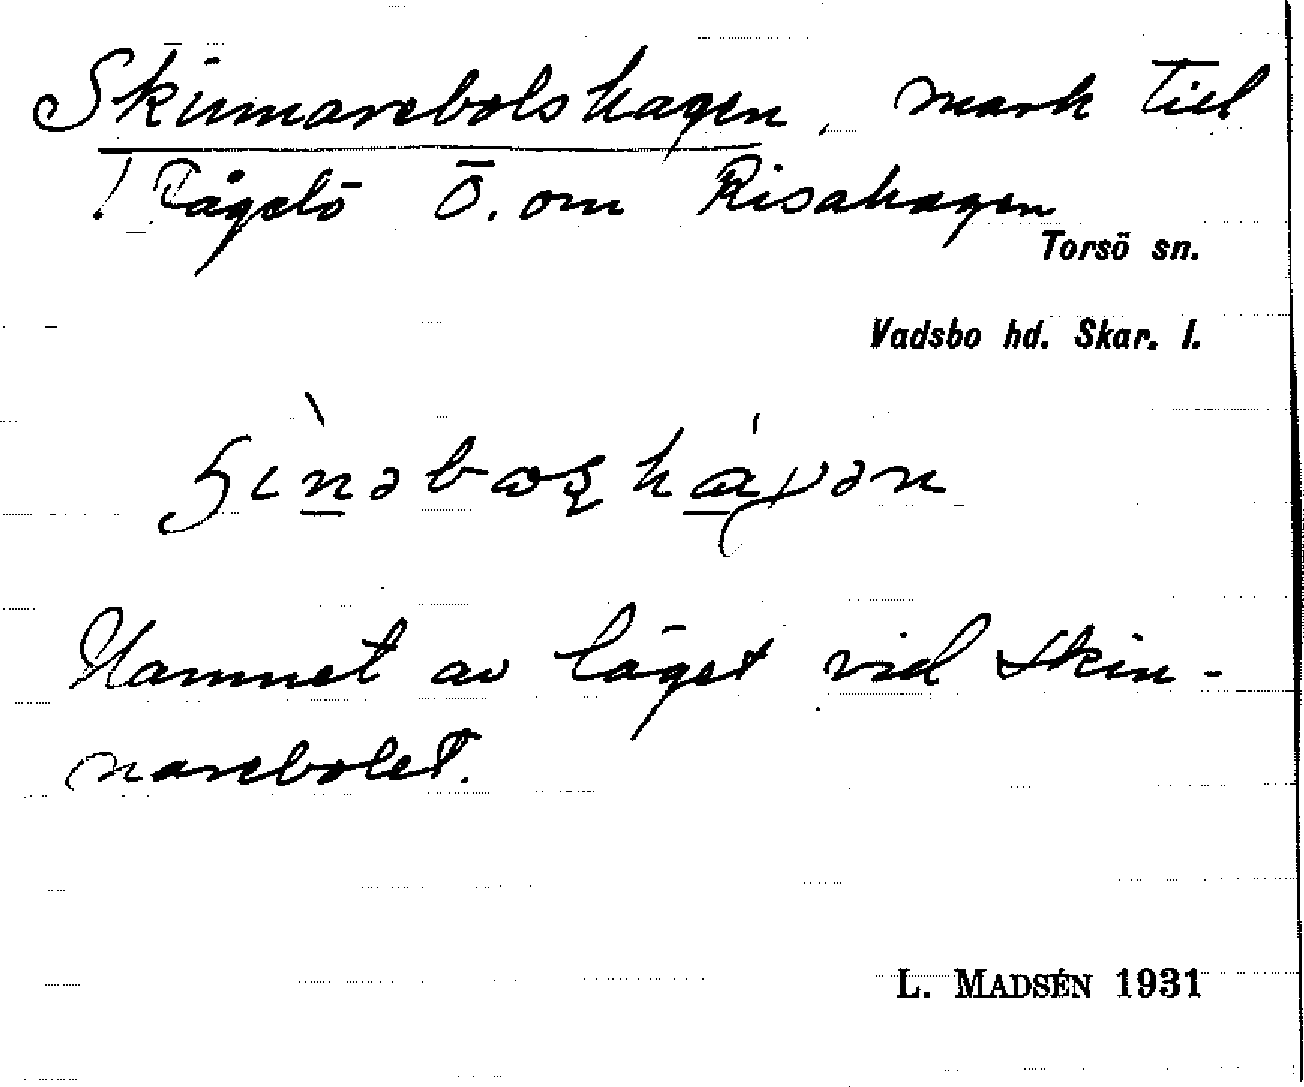 Skinnarebolshagen, mark till
Fågelö Ö. om Risahagen
Torsö sn.
Vadsbo hd. Skar. l.
Namnet av läget vid Skin-
narebolet.
L. MADSÉN 1931